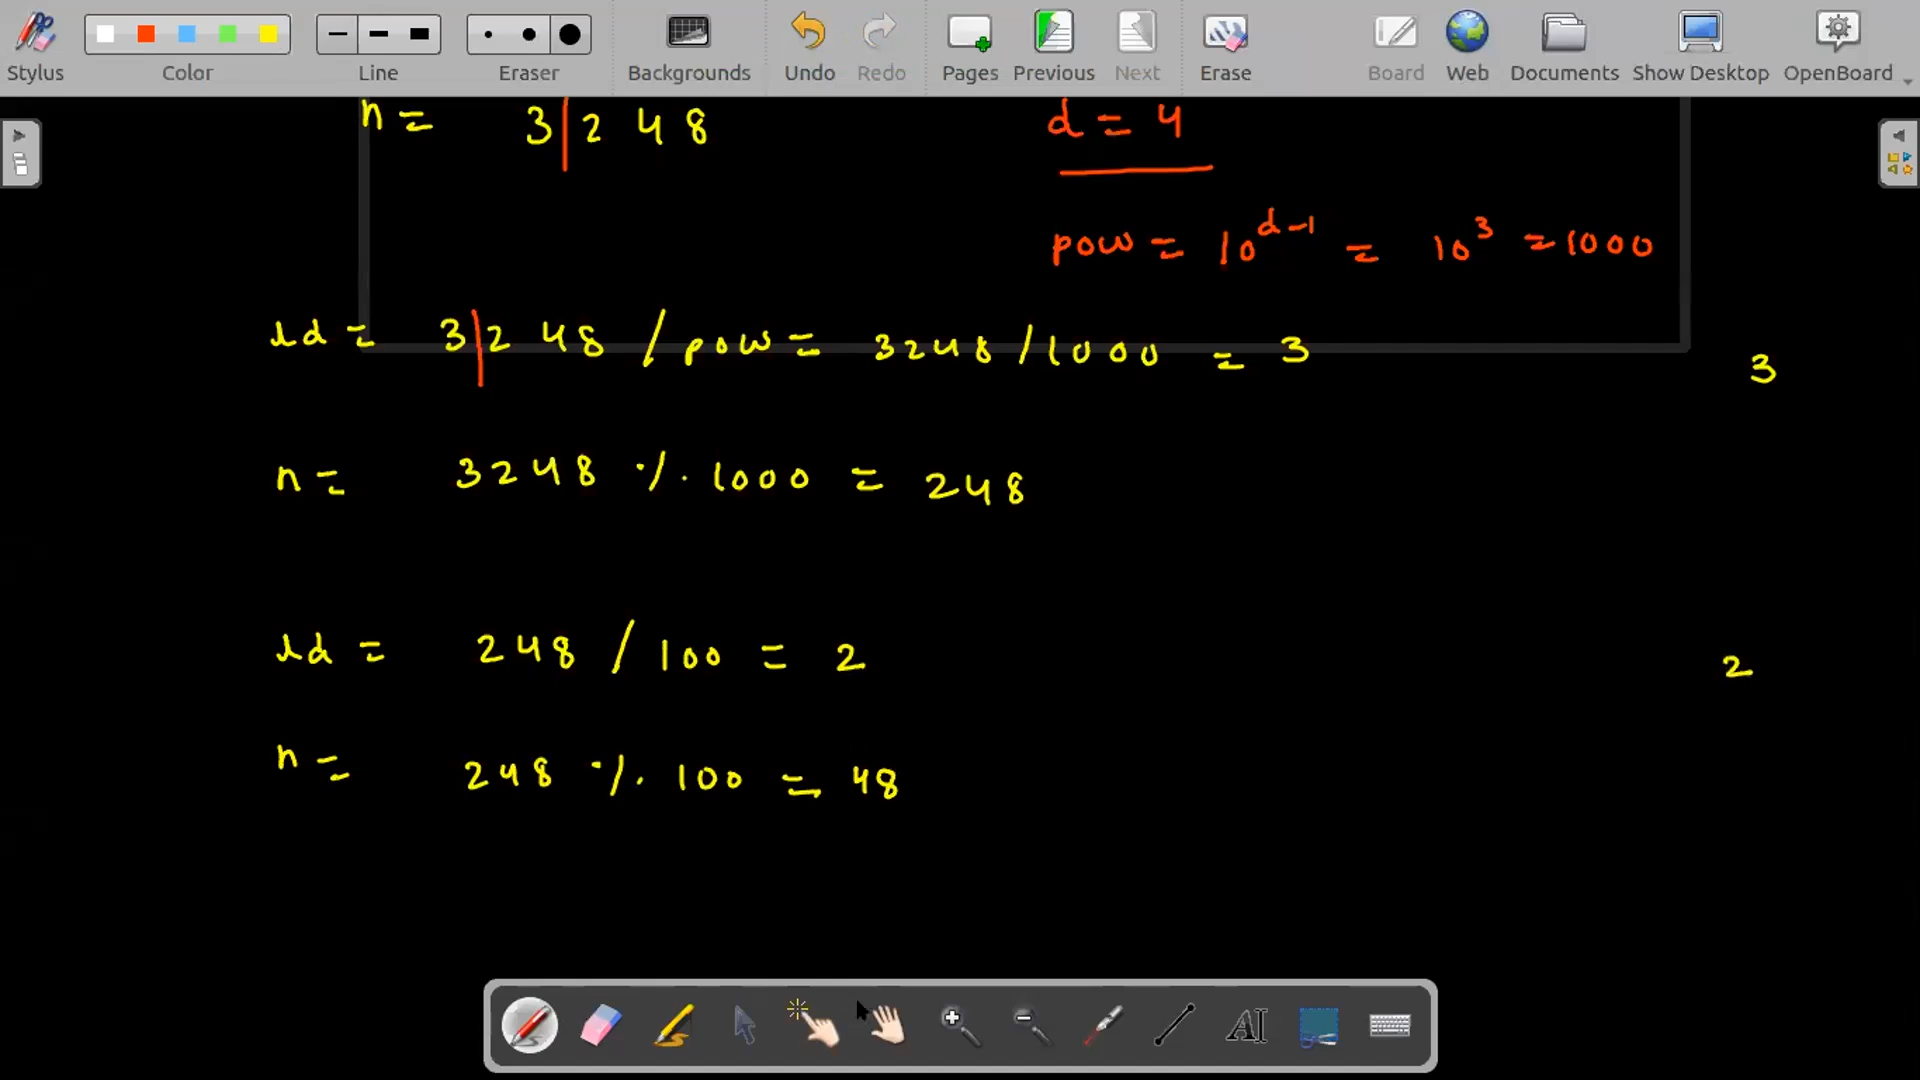 Stylus Color Line Eraser Backgrounds Undo Redo Pages Previous Next Erase Board Web Documents Show Desktop OpenBoard
n = 3|2 4 8 d = 4
pow = 10^d-1 = 10^3 = 1000
ld = 3|2 4 8 / pow = 3248 / 1000 = 3 3
n = 3248 % 1000 = 248
ld = 248 / 100 = 2 2
n = 248 % 100 = 48
AI